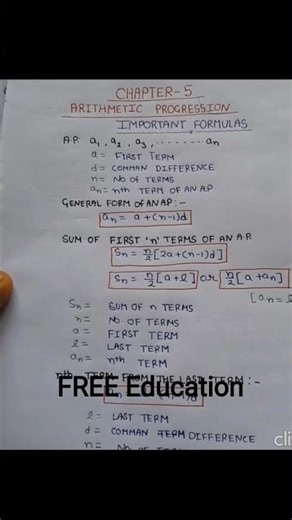 CHAPTER-5
ARITHMETIC PROGRESSION
IMPORTANT FORMULAS
A.P. a₁, a₂, a₃, ........ aₙ
a = FIRST TERM
d = COMMAN DIFFERENCE
n = NO OF TERMS
aₙ = nth TERM OF AN A.P
GENERAL FORM OF AN AP:-
aₙ = a+(n-1)d
SUM OF FIRST 'n' TERMS OF AN A.P.
Sₙ = n/2 [2a+(n-1)d]
Sₙ = n/2 [a+l] OR n/2 [a+aₙ]
[aₙ = l
Sₙ = SUM OF n TERMS
n = NO OF TERMS
a = FIRST TERM
l = LAST TERM
aₙ = nth TERM
nth TERM FROM THE LAST TERM:-
FREE Education
l = LAST TERM
d = COMMAN TERM DIFFERENCE
n = NO OF TERM
cli